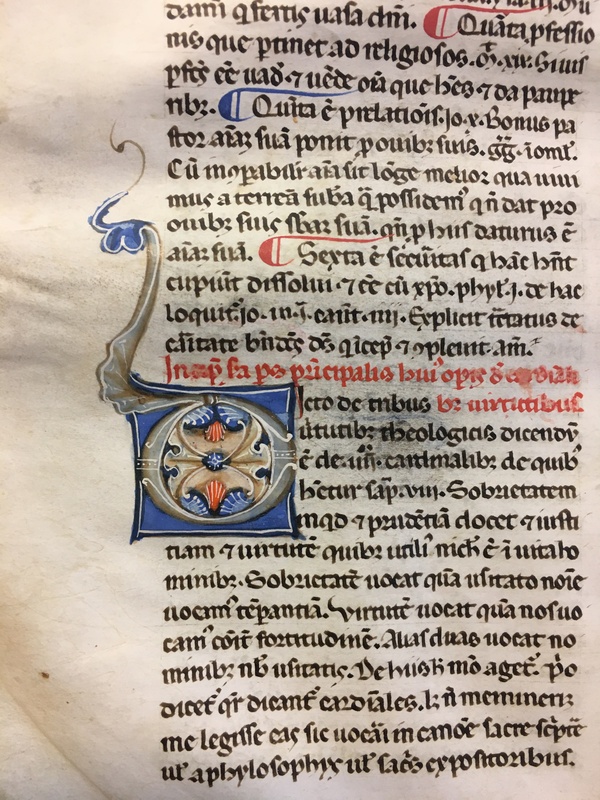 dam̄ q̄ fertis uasa dn̄i. ¶ Quarta ꝓfessio
nis que ꝑtinet ad religiosos. Si uis
ꝑfcs̄ eē uad̄. ⁊ uēde om̄ia que hēs ⁊ da pauꝑe
ribꝫ. ¶ Quīta ē prelatiōis. Jo. x. Bonus pa
stor aīaꝫ suā ponit ꝓ ouibꝫ suis. gḡ. ī omł.
Cū īcōꝑabilr̄ aīa sit lōge melior qua uiui
mus a terrena suba q̄ possidemꝰ qn̄ dat pro
ouibꝫ suis sbaꝫ suā. qn̄ ꝓ hiis daturus ē
aīaꝫ suā. ¶ Sexta ē secūitas q̄ hāc hn̄t
cupiūt dissolui ⁊ eē cū xp̄o. phyl. j. de hac
loquit̄ io. in .j. can̄t. iiij. Explicit tc̄tatus de
caritate bn̄dcs̄ ds̄ q īcep ⁊ ꝯpleuit. am̄.
Incip̄ sa ps prīcipalis huiꝰ opis d̄ cardīali
bꝫ uirtutibus
Dicto de tribus
uirtutibꝫ theologicis dicendū
ē de .iiij. cardinalibꝫ de quibꝰ
hētur sap̄. viii. Sobrietatem
inqd ⁊ prudētiā docet ⁊ iusti
tiam ⁊ uirtutē quibꝫ utiliꝰ nich̄ ē ī uita ho
minibꝫ. Sobrietatē uocat quā usitato noīe
uocamꝰ tēꝑantiā. Virtutē uocat quā nos uo
camꝰ cōit̄ fortitudinē. Alias duas uocat no
minibꝫ nb̄ usitatis. De hiis h̄ mō aget̄. Pꝰo
dicet̄ qr̄ dicant̄ cardīales. lꝫ n̄ meminerim
me legisse eas sic uocāi in canōe sacre sc̄pt̄e
ul̄ a phylosophis ul̄ sac̄s expositoribus.